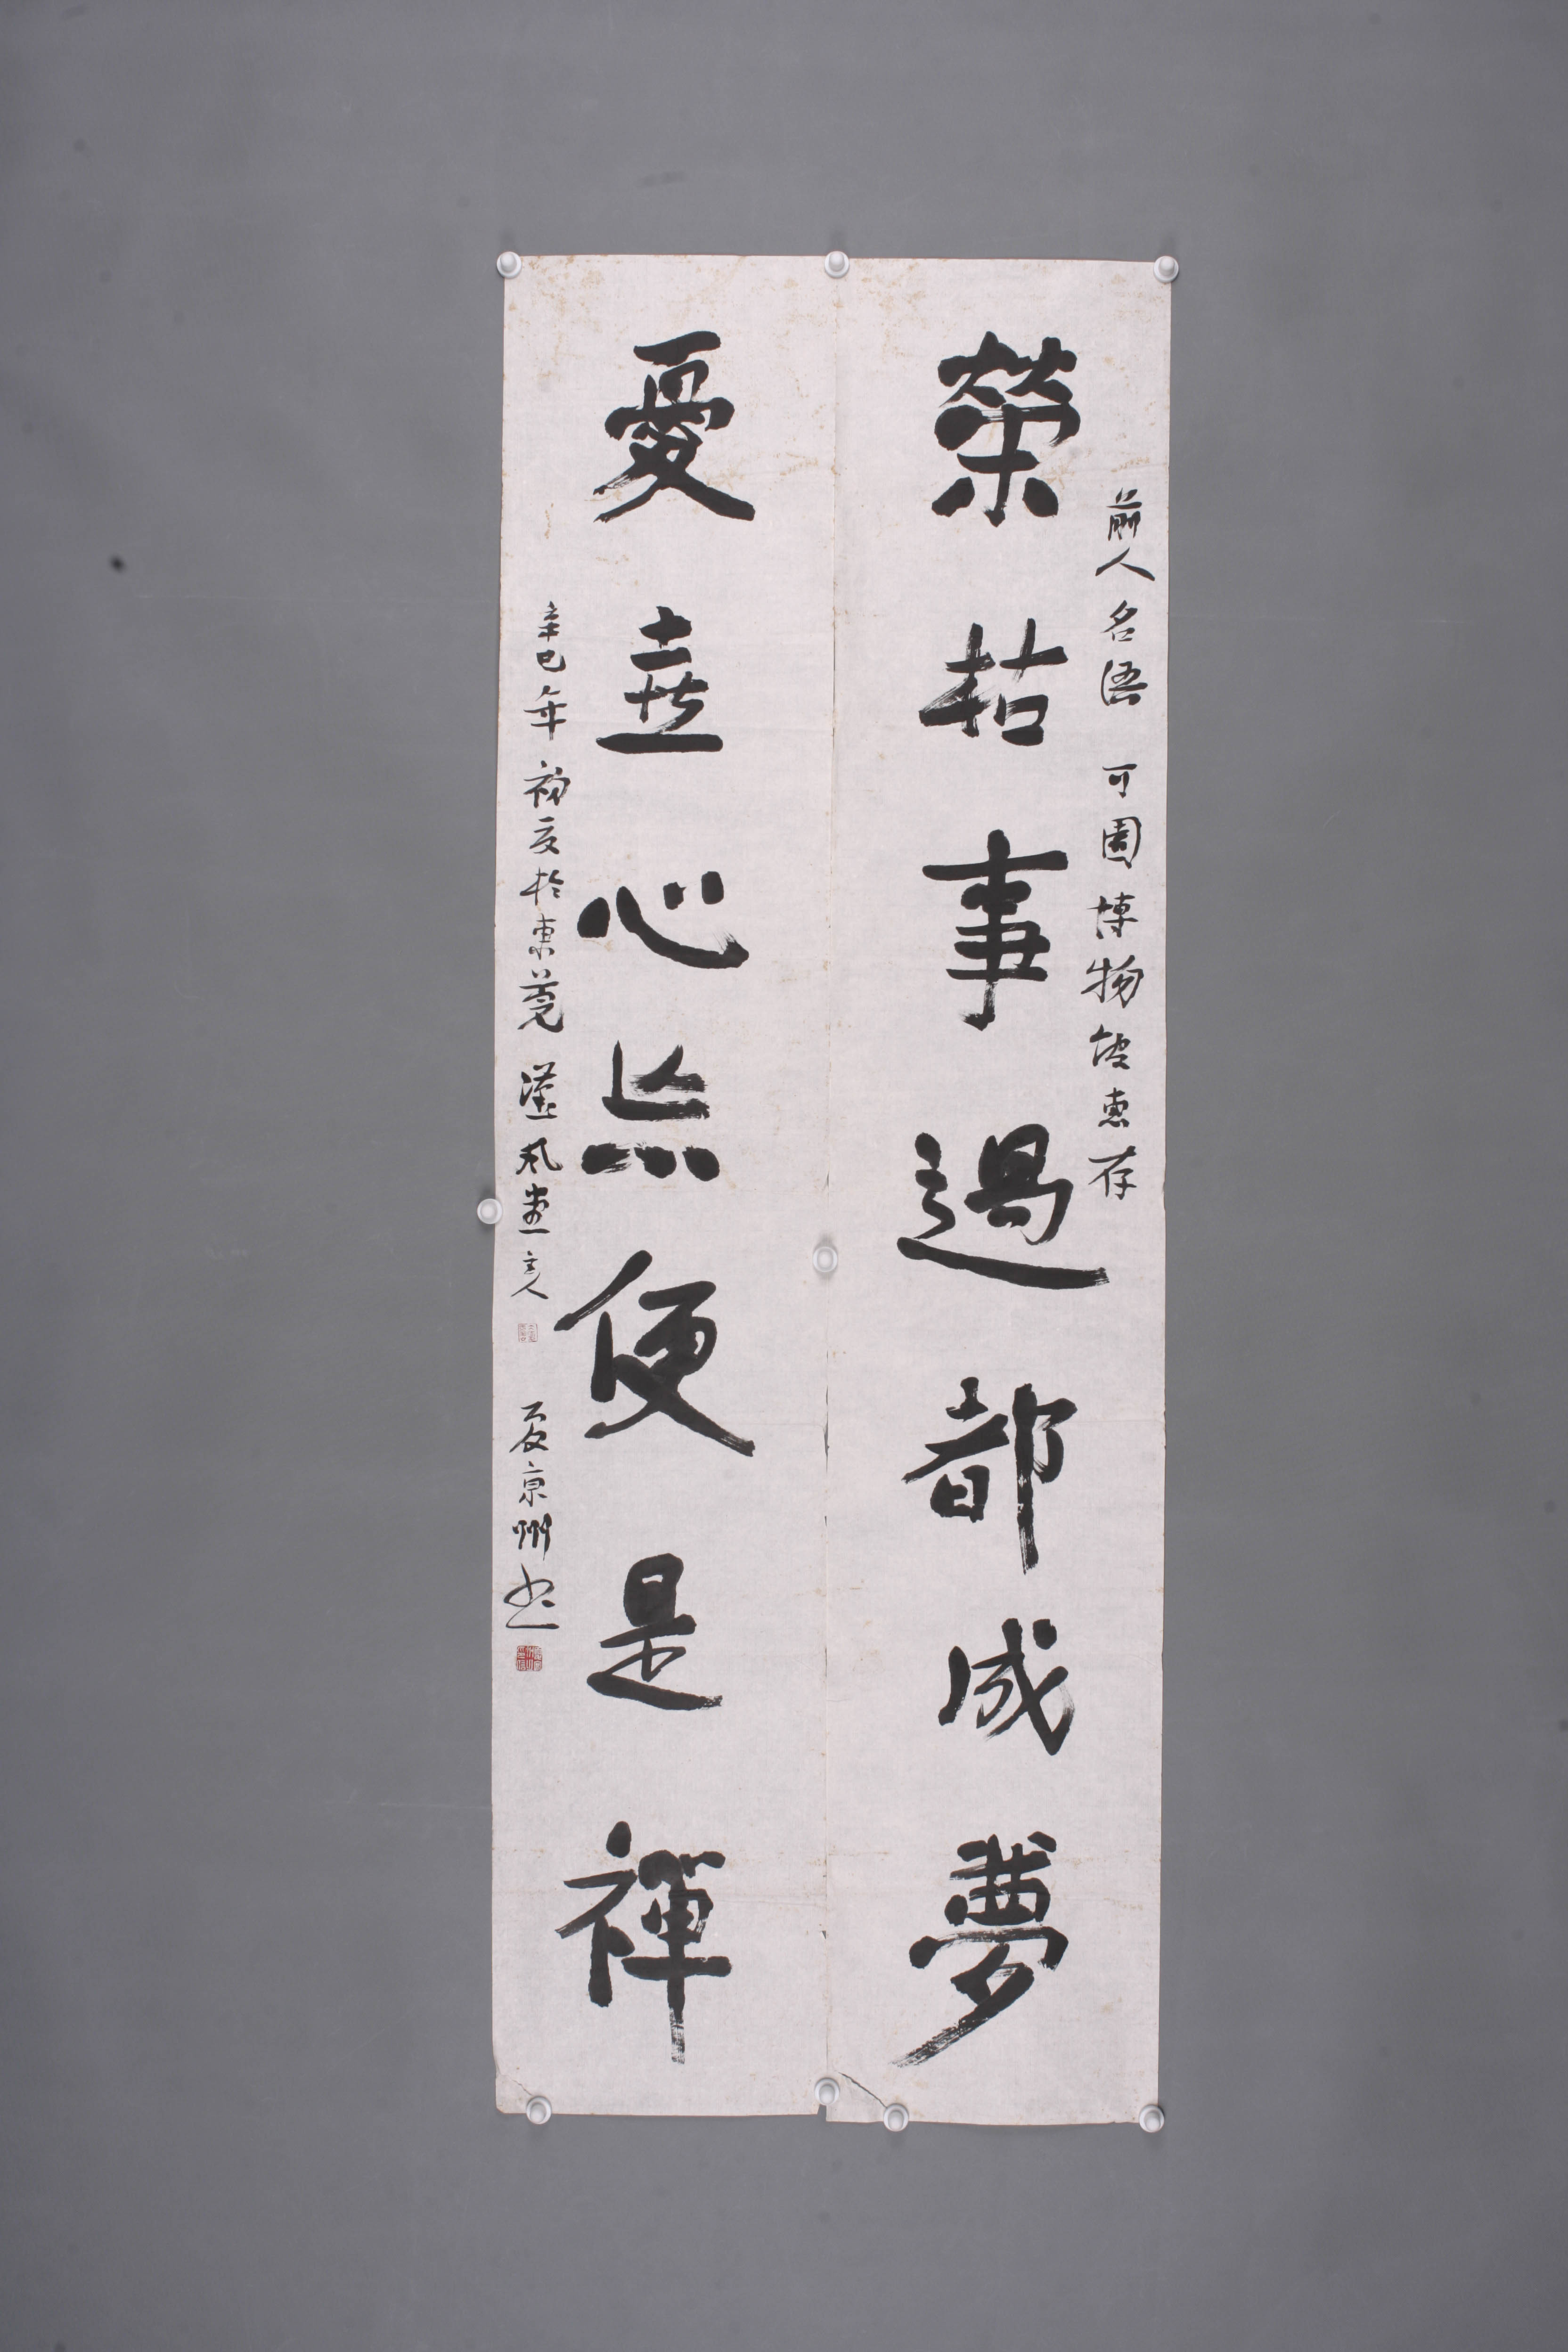 前人名语 可園博物館惠存
榮枯事過都成夢
憂喜心忘便是禪
辛巳年初夏於東莞漢風堂主人
夏京州書